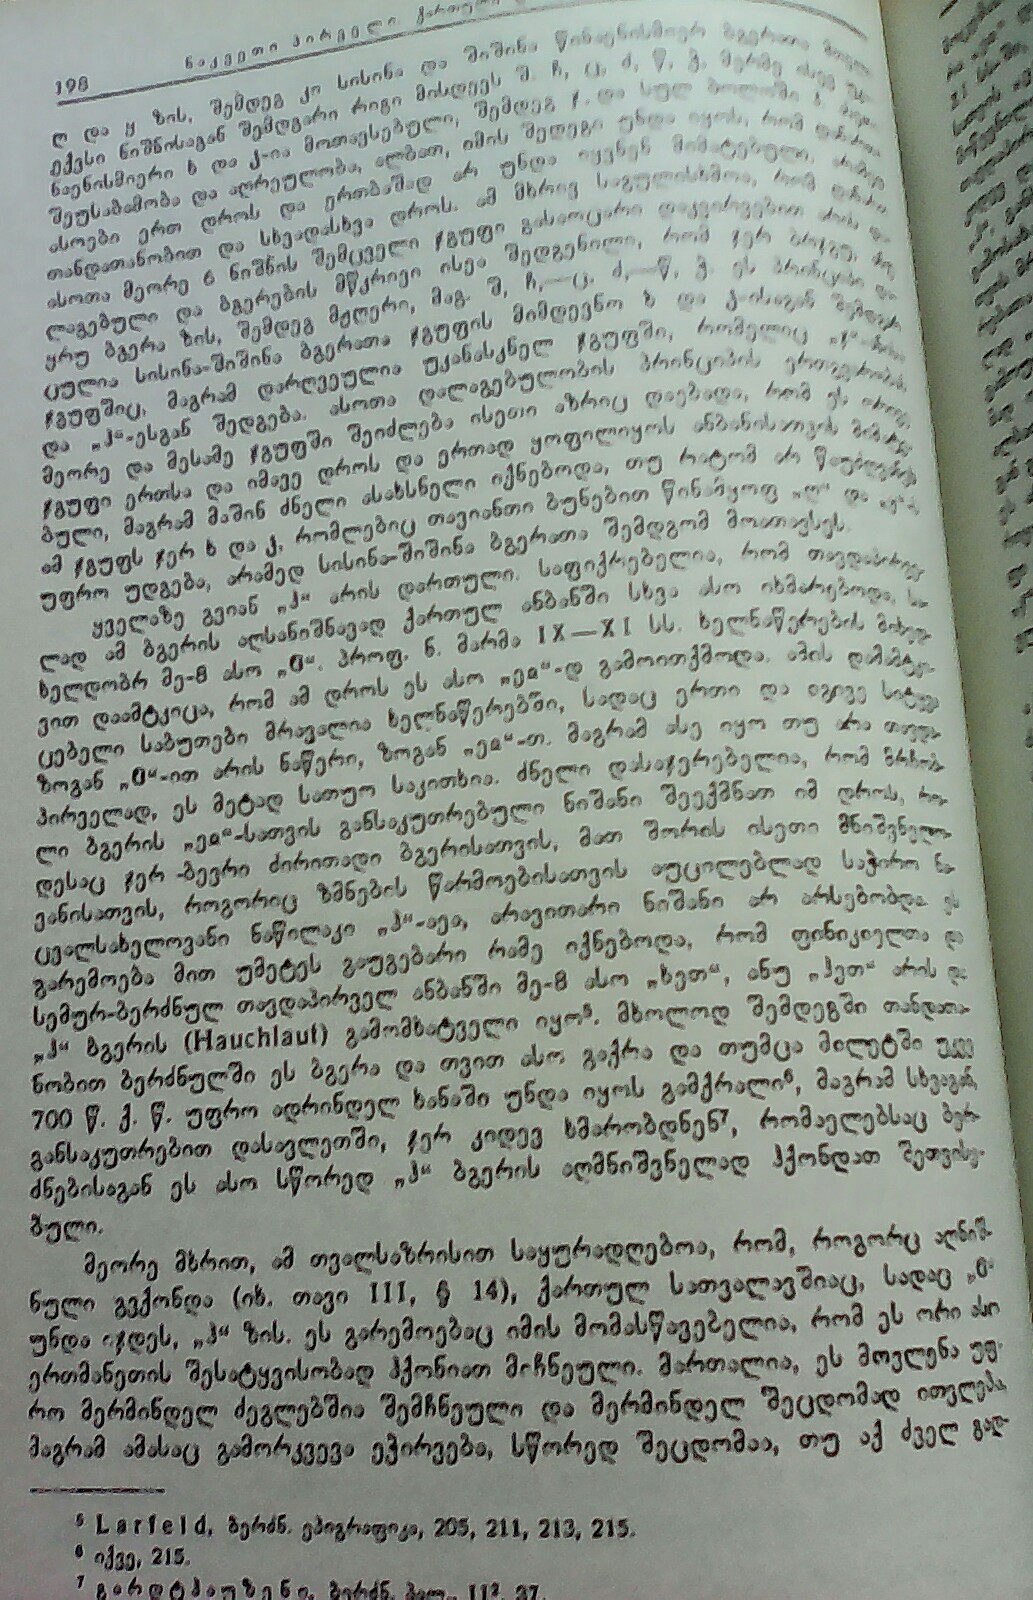 198 ნაკვეთი პირველი. ქართული
ღ და ყ ზის, შემდეგ კი სისინა და შიშინა წინაენისმიერ ბგერათა
ექვსი ნიშნისაგან შემდგარი რიგი მისდევს შ, ჩ, ც, ძ, წ, ჭ, მერმე ისევ
ნაენისმიერი ხ და ჴ-ია მოთავსებული, შემდეგ ჯ, და სულ ბოლოში ჰ.
შეუსაბამობა და აღრეულობა, ალბათ, იმის შედეგი უნდა იყოს, რომ
ასოები ერთ დროს და ერთბაშად არ უნდა იყვნენ მიმატებული, არამედ
თანდათანობით და სხვადასხვა დროს. ამ მხრივ საგულისხმოა, რომ
ასოთა მეორე 6 ნიშნის შემცველი ჯგუფი გასაოცარი დაკვირვებით
ლაგებული და ბგერების მწკრივი ისეა შედგენილი, რომ ჯერ
ყრუ ბგერა ზის, შემდეგ მჟღერი, მაგ. შ, ჩ,—ც, ძ,—წ, ჭ. ეს პრინციპი
ცულია სისინა-შიშინა ბგერათა ჯგუფის მიმდევნო ხ და ჴ-ისაგან შემდგარ
ჯგუფშიც, მაგრამ დარღვეულია უკანასკნელ ჯგუფში, რომელიც „ჯ“-
და „ჰ“-ესგან შედგება. ასოთა დალაგებულობის პრინციპის ერთგვარობის
მეორე და მესამე ჯგუფში შეიძლება ისეთი აზრიც დაებადა, რომ ეს
ჯგუფი ერთსა და იმავე დროს და ერთად ყოფილიყოს ანბანისათვის
ბული, მაგრამ მაშინ ძნელი ასახსნელი იქნებოდა, თუ რატომ არ
ამ ჯგუფს ჯერ ხ და ჴ, რომლებიც თავიანთი ბუნებით წინამყოფ „ღ“ და
უფრო უდგება, არამედ სისინა-შიშინა ბგერათა შემდგომ მოათავსეს.
ყველაზე გვიან „ჰ“ არის დართული. საფიქრებელია, რომ თავდაპირვე-
ლად ამ ბგერის აღსანიშნავად ქართულ ანბანში სხვა ასო იხმარებოდა,
ხელდობრ მე-8 ასო „ჱ“. პროფ. ნ. მარმა IX—XI სს. ხელნაწერების
ვით დაამტკიცა, რომ ამ დროს ეს ასო „ეჲ“-დ გამოითქმოდა. ამის დამამტკი-
ცებელი საბუთები მრავალია ხელნაწერებში, სადაც ერთი და იგივე სიტყვა
ზოგან „ჱ“-ით არის ნაწერი, ზოგან „ეჲ“-თ. მაგრამ ასე იყო თუ არა თავდა-
პირველად, ეს მეტად სათუო საკითხია. ძნელი დასაჯერებელია, რომ
ლი ბგერის „ეჲ“-სათვის განსაკუთრებული ნიშანი შეექმნათ იმ დროს, რო-
დესაც ჯერ -ბევრი ძირითადი ბგერისათვის, მათ შორის ისეთი მნიშვნელო-
ვანისათვის, როგორიც ზმნების წარმოებისათვის აუცილებლად საჭირო ნა-
ცვალსახელოვანი ნაწილაკი „ჰ“-აეა, არავითარი ნიშანი არ არსებობდა. ეს
გარემოება მით უმეტეს გაუგებარი რამე იქნებოდა, რომ ფინიკიელთა და
სემურ-ბერძნულ თავდაპირველ ანბანში მე-8 ასო „ხეთ“, ანუ „ჰეთ“ არის და
„ჰ“ ბგერის (Hauchlaut) გამომხატველი იყო⁵. მხოლოდ შემდეგში თანდათა-
ნობით ბერძნულში ეს ბგერა და თვით ასო გაქრა და თუმცა მილეტში უკვე
700 წ. ქ. წ. უფრო ადრინდელ ხანაში უნდა იყოს გამქრალი⁶, მაგრამ სხვაგან,
განსაკუთრებით დასავლეთში, ჯერ კიდევ ხმარობდნენ⁷, რომაელებსაც ბერ-
ძნებისაგან ეს ასო სწორედ „ჰ“ ბგერის აღმნიშვნელად ჰქონდათ შეთვისე-
ბული.
მეორე მხრით, ამ თვალსაზრისით საყურადღებოა, რომ, როგორც აღნიშ-
ნული გვქონდა (იხ. თავი III, § 14), ქართულ სათვალავშიაც, სადაც „ჱ“
უნდა იჯდეს, „ჰ“ ზის. ეს გარემოებაც იმის მომასწავებელია, რომ ეს ორი ასო
ერთმანეთის შესატყვისობად ჰქონიათ მიჩნეული. მართალია, ეს მოვლენა უფ-
რო მერმინდელ ძეგლებშია შემჩნეული და მერმინდელ შეცდომად ითვლება,
მაგრამ ამასაც გამორკვევა ეჭირვება, სწორედ შეცდომაა, თუ აქ ძველ გად-
⁵ Larfeld, ბერძნ. ეპიგრაფიკა, 205, 211, 213, 215.
⁶ იქვე, 215.
⁷ გარდტჰაუზენი, ბერძნ. პალ., II², 37.